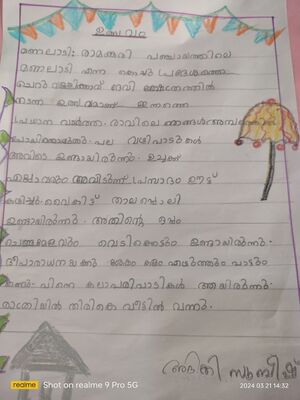 ഉത്സവം
മണലാടി: രാമങ്കരി പഞ്ചായത്തിലെ
മണലാടി എന്ന കൊച്ചു പ്രദേശത്തെ
ദേവി ക്ഷേത്രത്തിൽ
ഉത്സവമാണ് ഇന്നത്തെ
പ്രധാന വാർത്ത. രാവിലെ ഞങ്ങൾ അമ്പലത്തിൽ
പല വഴിപാടുകൾ
അവിടെ ഉണ്ടായിരുന്നു. ഉച്ചക്ക്
എല്ലാവരും അവിടുന്ന് പ്രസാദം ഊട്ട്
കഴിച്ചു. വൈകിട്ട് താലപ്പൊലി
ഉണ്ടായിരുന്നു. അതിന്റെ ഒപ്പം
ചെണ്ടമേളവും വെടിക്കെട്ടും ഉണ്ടായിരുന്നു.
ദീപാരാധനയ്ക്കു ശേഷം കളം എഴുത്തും പാട്ടും
പിന്നെ കലാപരിപാടികൾ ആയിരുന്നു.
രാത്രിയിൽ തിരികെ വീട്ടിൽ വന്നു.
അദിതി സുബീഷ്
realme Shot on realme 9 Pro 5G
2024.03.21 14:32